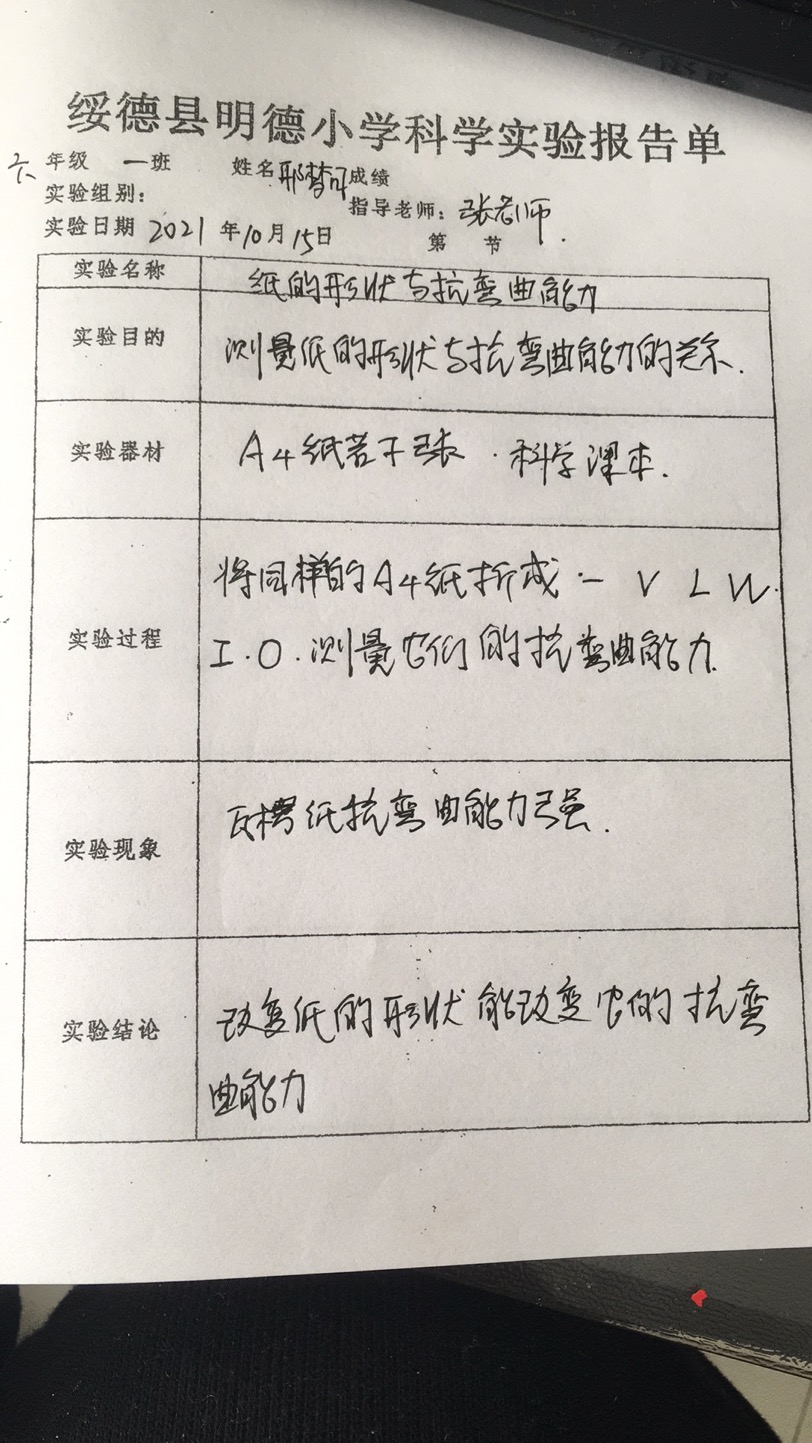 绥德县明德小学科学实验报告单
六年级 一班 姓名 邢梦可 成绩
实验组别： 指导老师：张老师
实验日期 2021 年 10 月 15 日 第 节.
实验名称 纸的形状与抗弯曲能力
实验目的 测量纸的形状与抗弯曲能力的关系.
实验器材 A4纸若干张．科学课本.
实验过程
将同样的A4纸折成 一 V L W.
I.O.测量它们的抗弯曲能力.
实验现象 瓦楞纸抗弯曲能力强.
实验结论
改变纸的形状能改变它的抗弯
曲能力